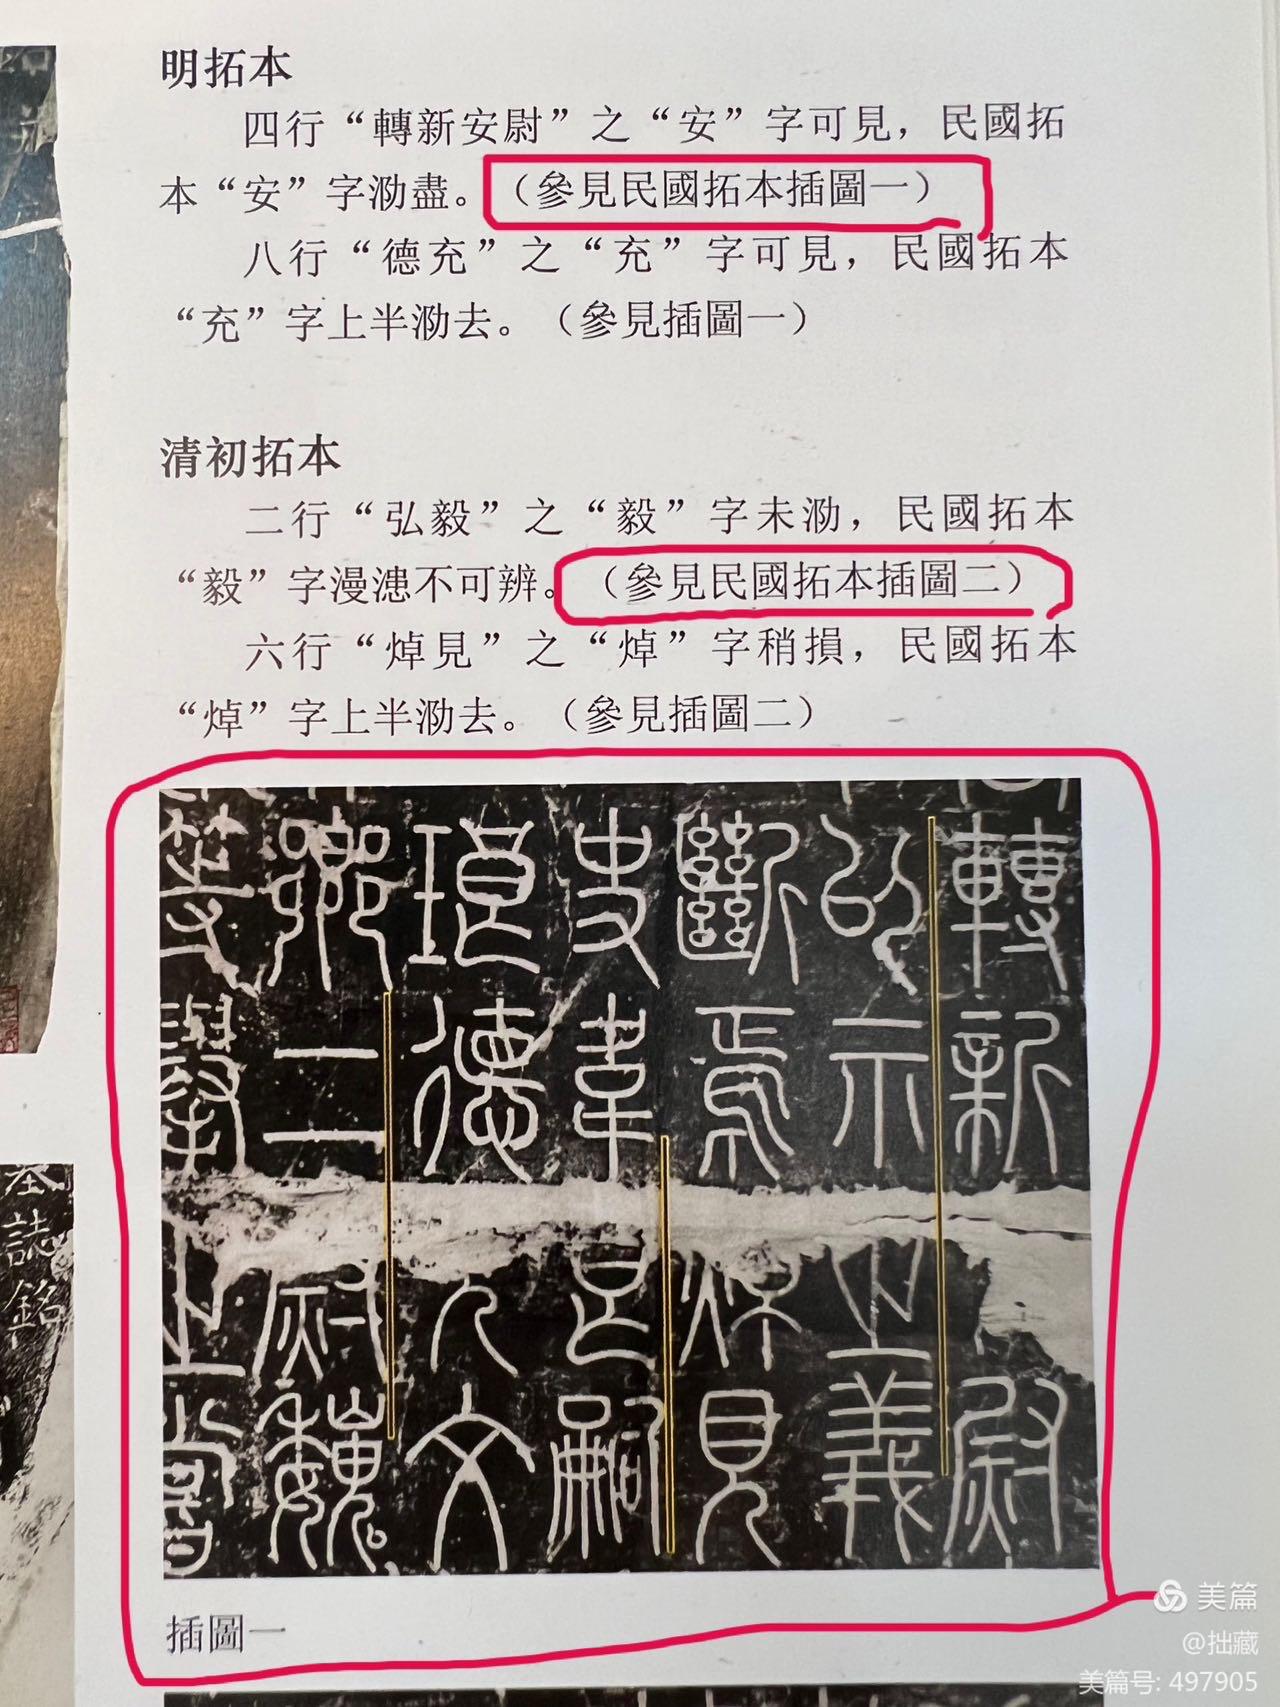 明拓本
四行“轉新安尉”之“安”字可見，民國拓
本“安”字泐盡。（參見民國拓本插圖一）
八行“德充”之“充”字可見，民國拓本
“充”字上半泐去。（參見插圖一）
清初拓本
二行“弘毅”之“毅”字未泐，民國拓本
“毅”字漫漶不可辨。（參見民國拓本插圖二）
六行“焯見”之“焯”字稍損，民國拓本
“焯”字上半泐去。（參見插圖二）
轉新尉
以示之義
斷焉焯見
史韋嗣
德充文
卿二尉魏
插圖一
墓誌銘
美篇
@拙藏
美篇号: 497905